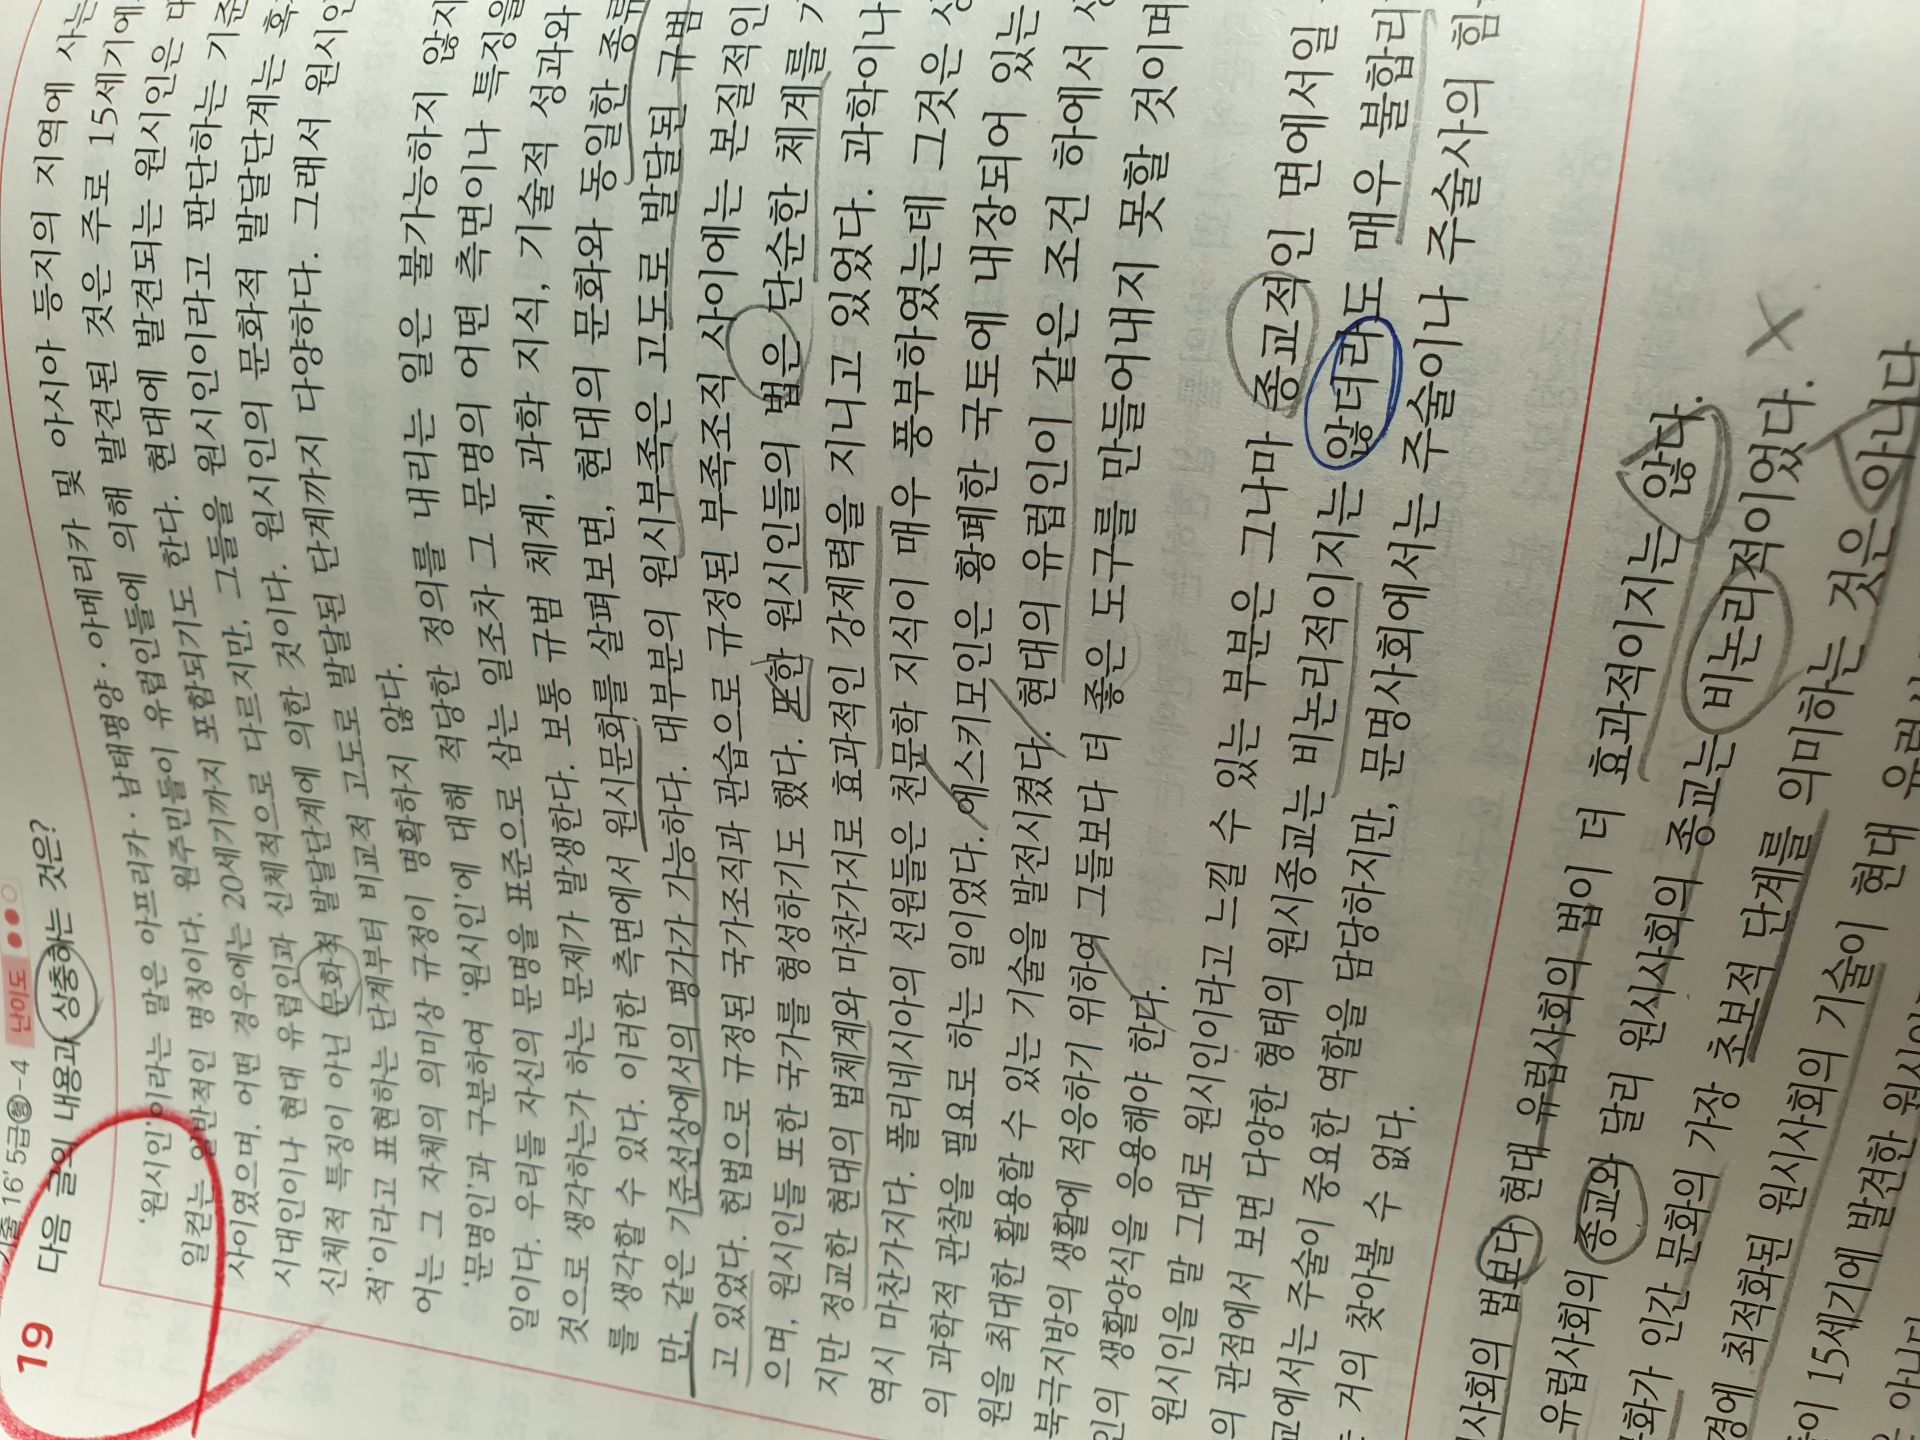 19
기출 16' 5급㉻-4 난이도 ●●○
다음 글의 내용과 상충하는 것은?
'원시인'이라는 말은 아프리카·남태평양·아메리카 및 아시아 등지의 지역에 사는
일컫는 일반적인 명칭이다. 원주민들이 유럽인들에 의해 발견된 것은 주로 15세기에
사이였으며, 어떤 경우에는 20세기까지 포함되기도 한다. 현대에 발견되는 원시인은
시대인이나 현대 유럽인과 신체적으로 다르지만, 그들을 원시인이라고 판단하는 기준
신체적 특징이 아닌 문화적 발달단계에 의한 것이다. 원시인의 문화적 발달단계는
적'이라고 표현하는 단계부터 비교적 고도로 발달된 단계까지 다양하다. 그래서 원시인
어는 그 자체의 의미상 규정이 명확하지 않다.
'문명인'과 구분하여 '원시인'에 대해 적당한 정의를 내리는 일은 불가능하지 않지
일이다. 우리들 자신의 문명을 표준으로 삼는 일조차 그 문명의 어떤 측면이나 특징을
것으로 생각하는가 하는 문제가 발생한다. 보통 규범 체계, 과학 지식, 기술적 성과와
를 생각할 수 있다. 이러한 측면에서 원시문화를 살펴보면, 현대의 문화와 동일한 종류
만, 같은 기준선상에서의 평가가 가능하다. 대부분의 원시부족은 고도로 발달된 규범
고 있었다. 헌법으로 규정된 국가조직과 관습으로 규정된 부족조직 사이에는 본질적인
으며, 원시인들 또한 국가를 형성하기도 했다. 또한 원시인들의 법은 단순한 체계를
지만 정교한 현대의 법체계와 마찬가지로 효과적인 강제력을 지니고 있었다. 과학이나
역시 마찬가지다. 폴리네시아의 선원들은 천문학 지식이 매우 풍부하였는데 그것은
의 과학적 관찰을 필요로 하는 일이었다. 에스키모인은 황폐한 국토에 내장되어 있는
원을 최대한 활용할 수 있는 기술을 발전시켰다. 현대의 유럽인이 같은 조건 하에서
북극지방의 생활에 적응하기 위하여 그들보다 더 좋은 도구를 만들어내지 못할 것이며
인의 생활양식을 응용해야 한다.
원시인을 말 그대로 원시인이라고 느낄 수 있는 부분은 그나마 종교적인 면에서일
의 관점에서 보면 다양한 형태의 원시종교는 비논리적이지는 않더라도 매우 불합리
교에서는 주술이 중요한 역할을 담당하지만, 문명사회에서는 주술이나 주술사의 힘
는 거의 찾아볼 수 없다.
사회의 법보다 현대 유럽사회의 법이 더 효과적이지는 않다.
유럽사회의 종교와 달리 원시사회의 종교는 비논리적이었다. X
화가 인간 문화의 가장 초보적 단계를 의미하는 것은 아니다
경에 최적화된 원시사회의 기술이 현대
15세기에 발견한